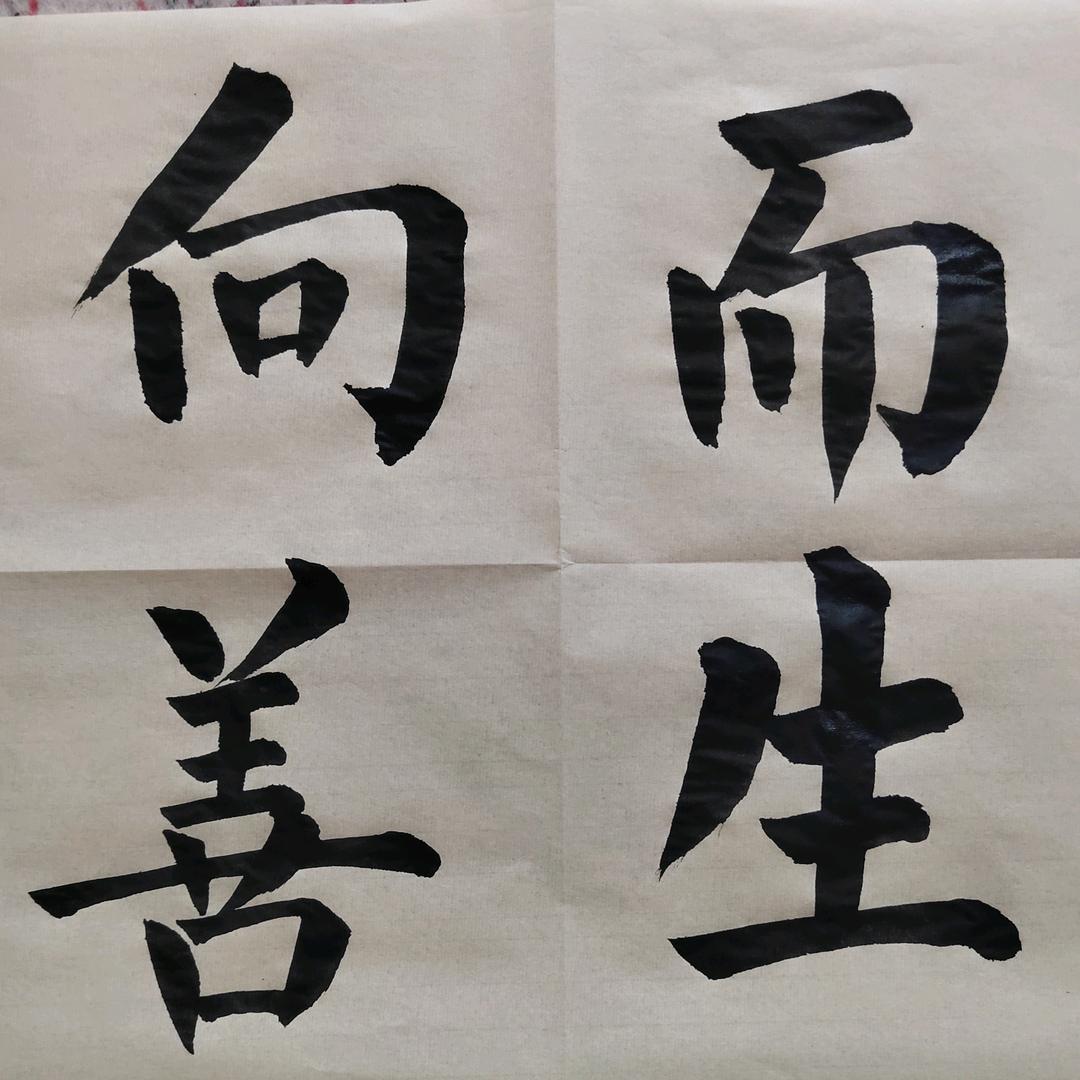 向善
而生